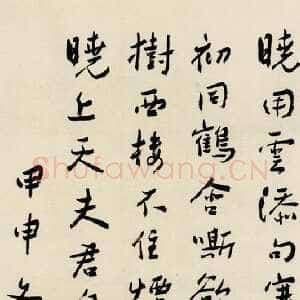 曉用雲添句寒
初同鶴含嘶欲
樹西樓不住煙
曉上天夫君
甲申
Shufawang.CN